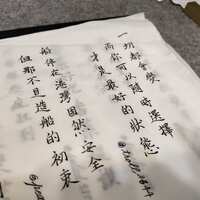 一切都會學
而你可以隨時選擇
才是最好的狀態
船停在港灣固然安全
但那不是造船的初衷